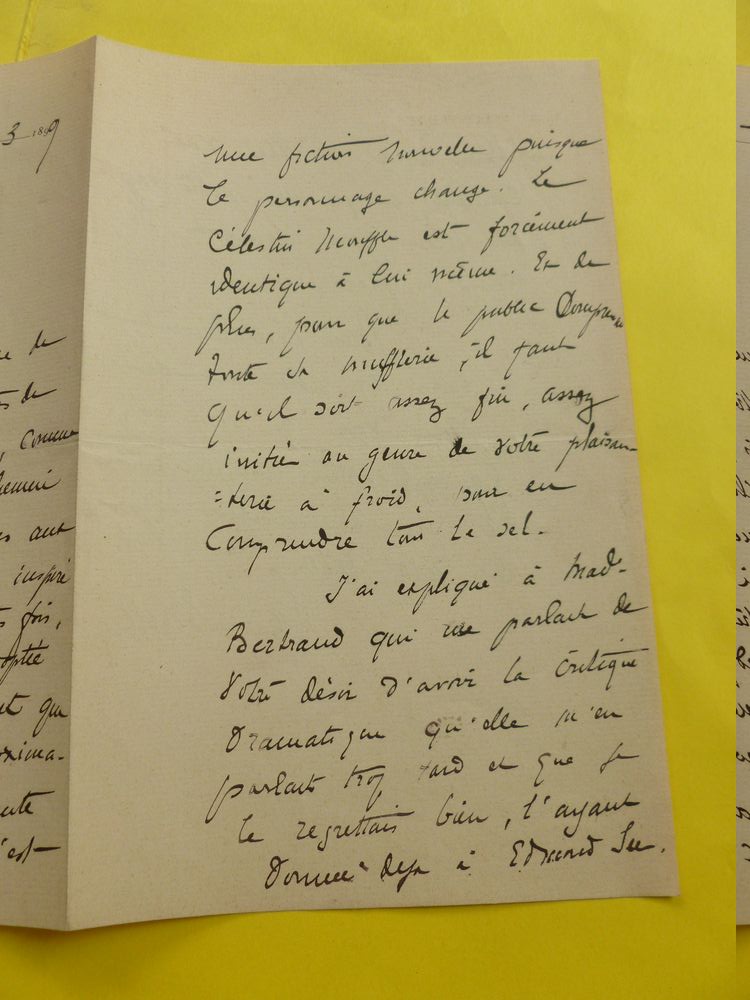 3 1899
ue de
es de
, comme
hement
es aux
inspiré
s fois,
opté
et que
oxima-
ute
'est
une fiction nouvelle puisque
le personnage change. Le
Célestin Mouffle est forcément
identique à lui même. Et de
plus, pour que le public comprenne
toute sa mufflerie, il faut
qu'il soit assez fin, assez
initié au genre de votre plaisan-
=terie à froid, pour en
comprendre tout le sel.
J'ai expliqué à Mad.
Bertrand qui me parlait de
votre désir d'avoir la critique
dramatique qu'elle m'en
parlait trop tard et que je
le regrettais bien, l'ayant
donnée déjà à Edmond See.